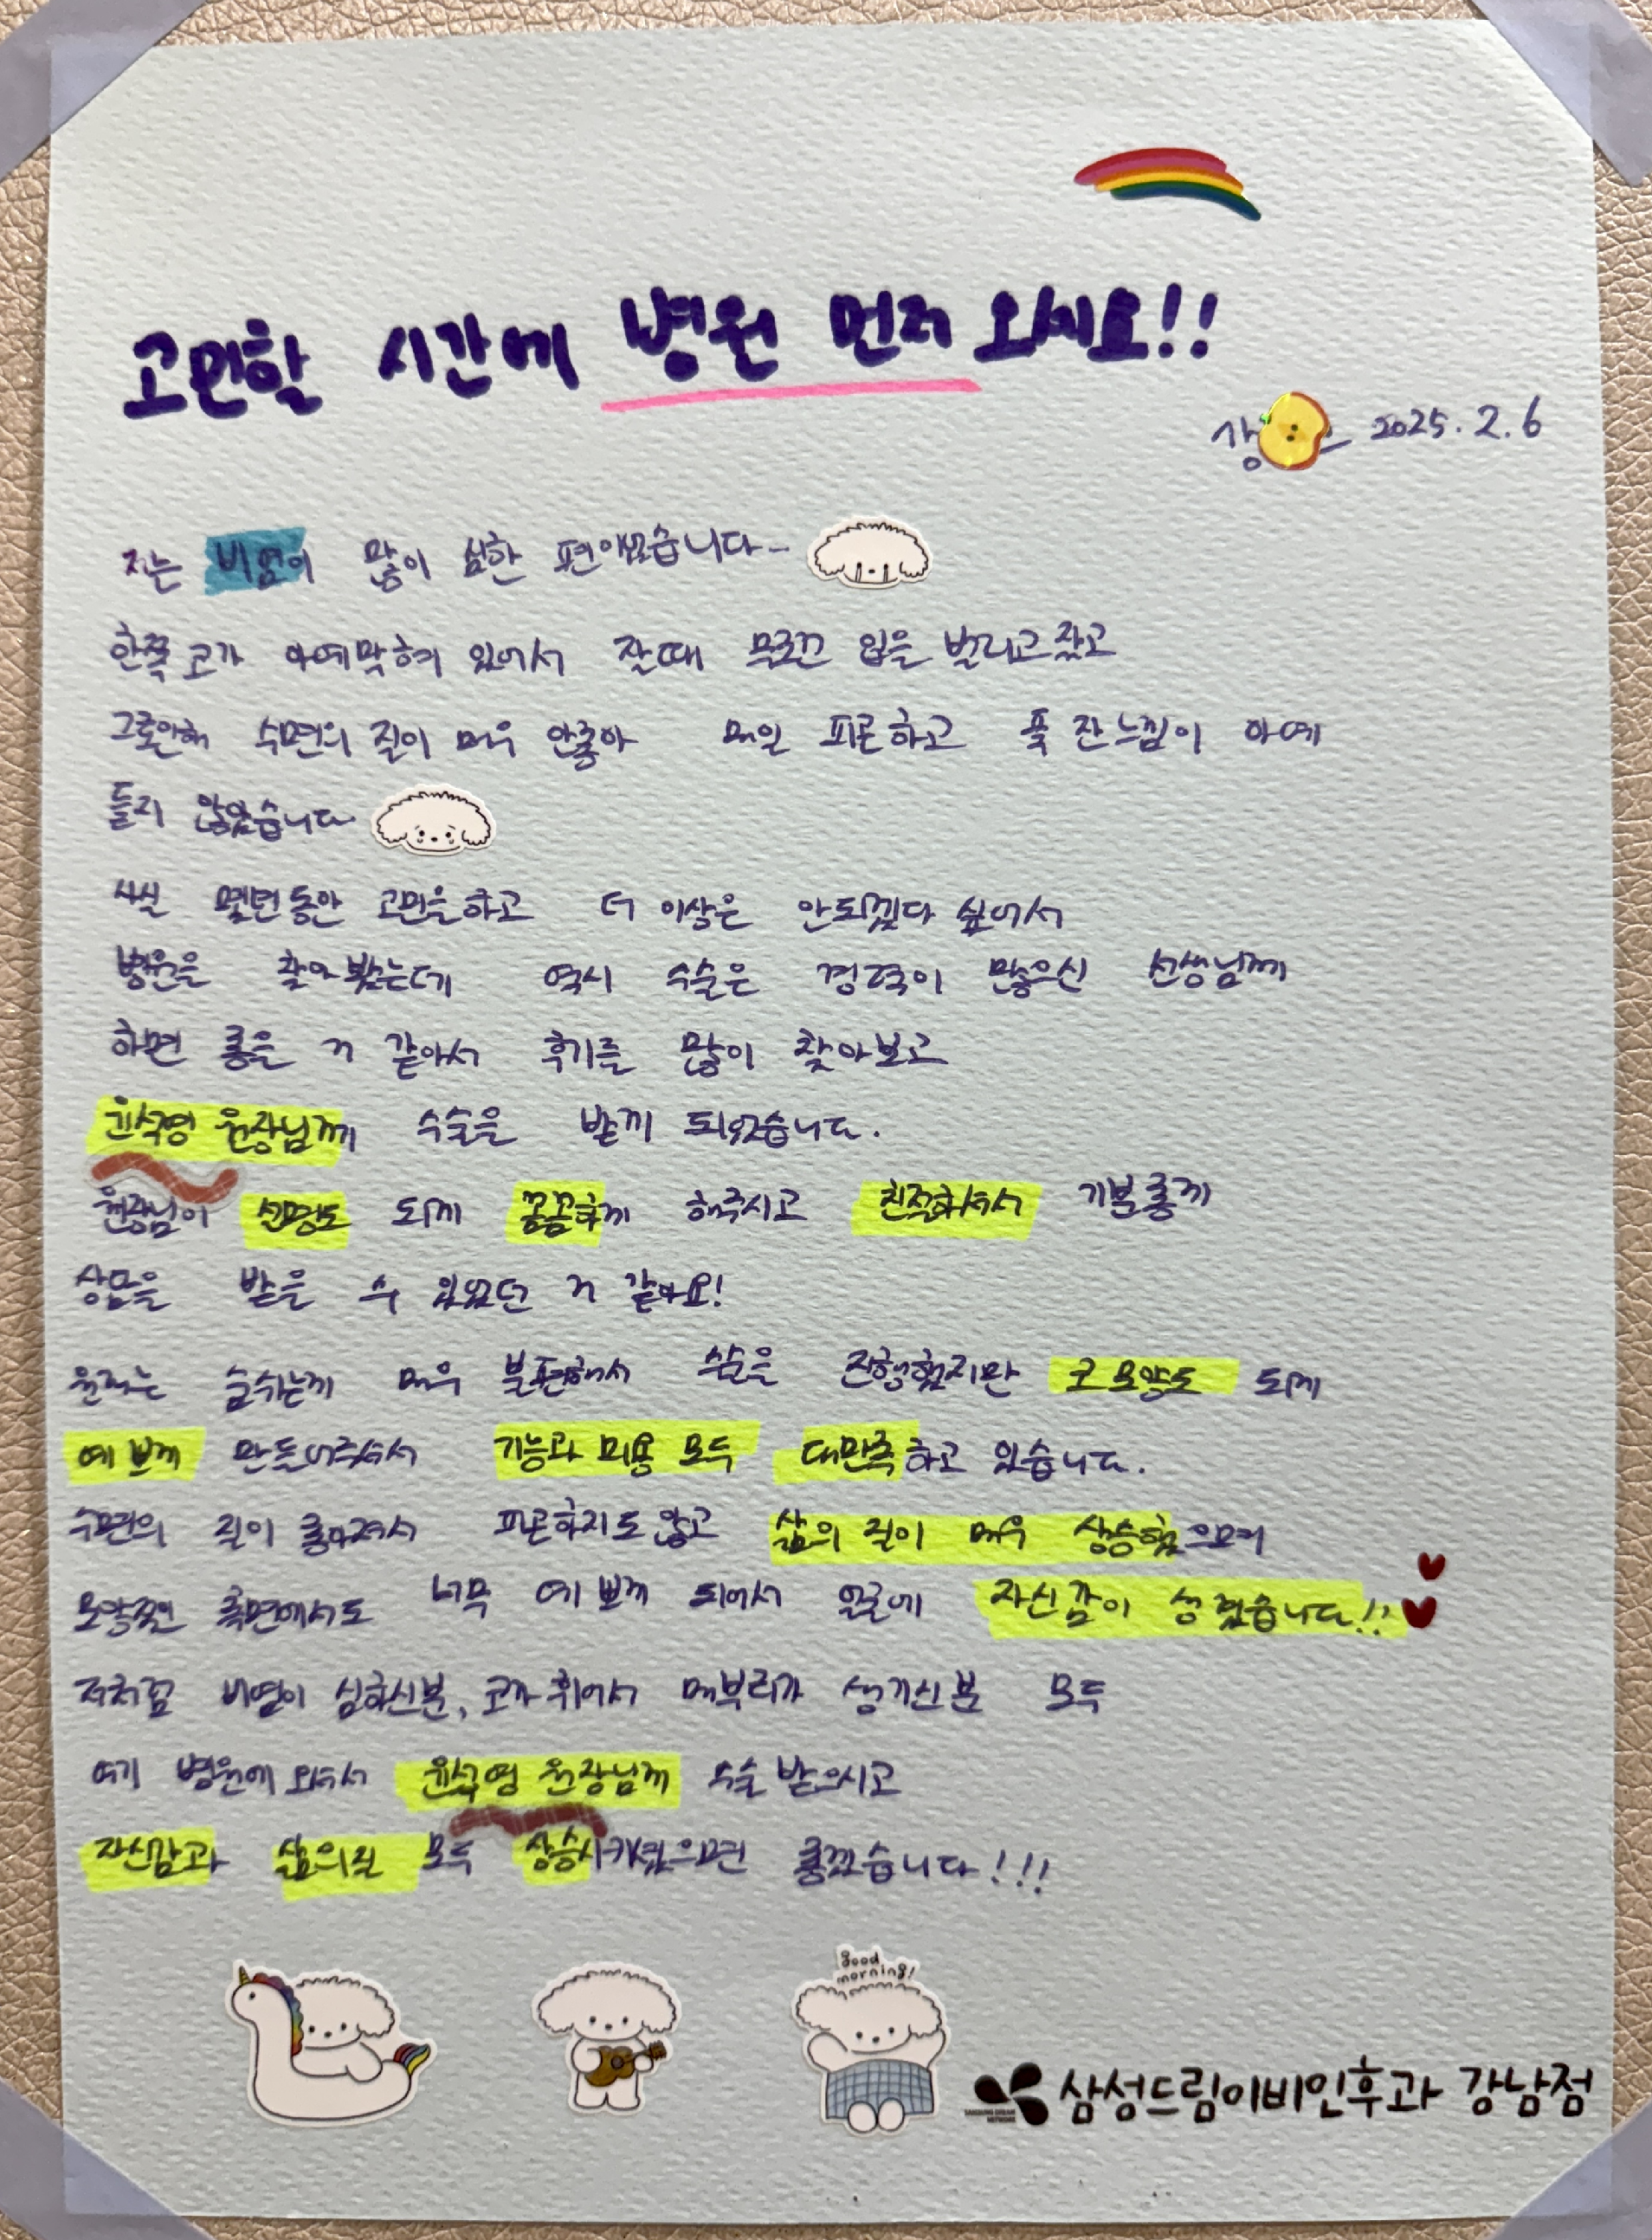 고민할 시간에 병원 먼저 오세요!!
2025.2.6
저는 비염이 많이 심한 편이었습니다~
한쪽 코가 아예 막혀 있어서 잘때 무조건 입을 벌리고 잤고
그로인해 수면의 질이 매우 안좋아 매일 피곤하고 푹 잔느낌이 아예
들지 않았습니다
사실 몇년동안 고민을하고 더 이상은 안되겠다 싶어서
병원을 찾아봤는데 역시 수술은 경력이 많으신 선생님께
하면 좋을 거 같아서 후기를 많이 찾아보고
윤석영 원장님께 수술을 받게 되었습니다.
원장님이 설명도 되게 꼼꼼하게 해주시고 친절하셔서 기분좋게
상담을 받을 수 있었던 거 같아요!
원래는 숨쉬는게 매우 불편해서 수술을 진행했지만 코 모양도 되게
예쁘게 만들어주셔서 기능과 미용 모두 대만족하고 있습니다.
수면의 질이 좋아져서 피곤하지도 않고 삶의 질이 매우 상승했으며
모양적인 측면에서도 너무 예쁘게 되어서 얼굴에 자신감이 생겼습니다!!
저처럼 비염이 심하신분, 코가 휘어서 매부리가 생기신 분 모두
여기 병원에 오셔서 윤석영 원장님께 수술 받으시고
자신감과 삶의질 모두 상승시키셨으면 좋겠습니다!!!
good
morning!
삼성드림이비인후과 강남점